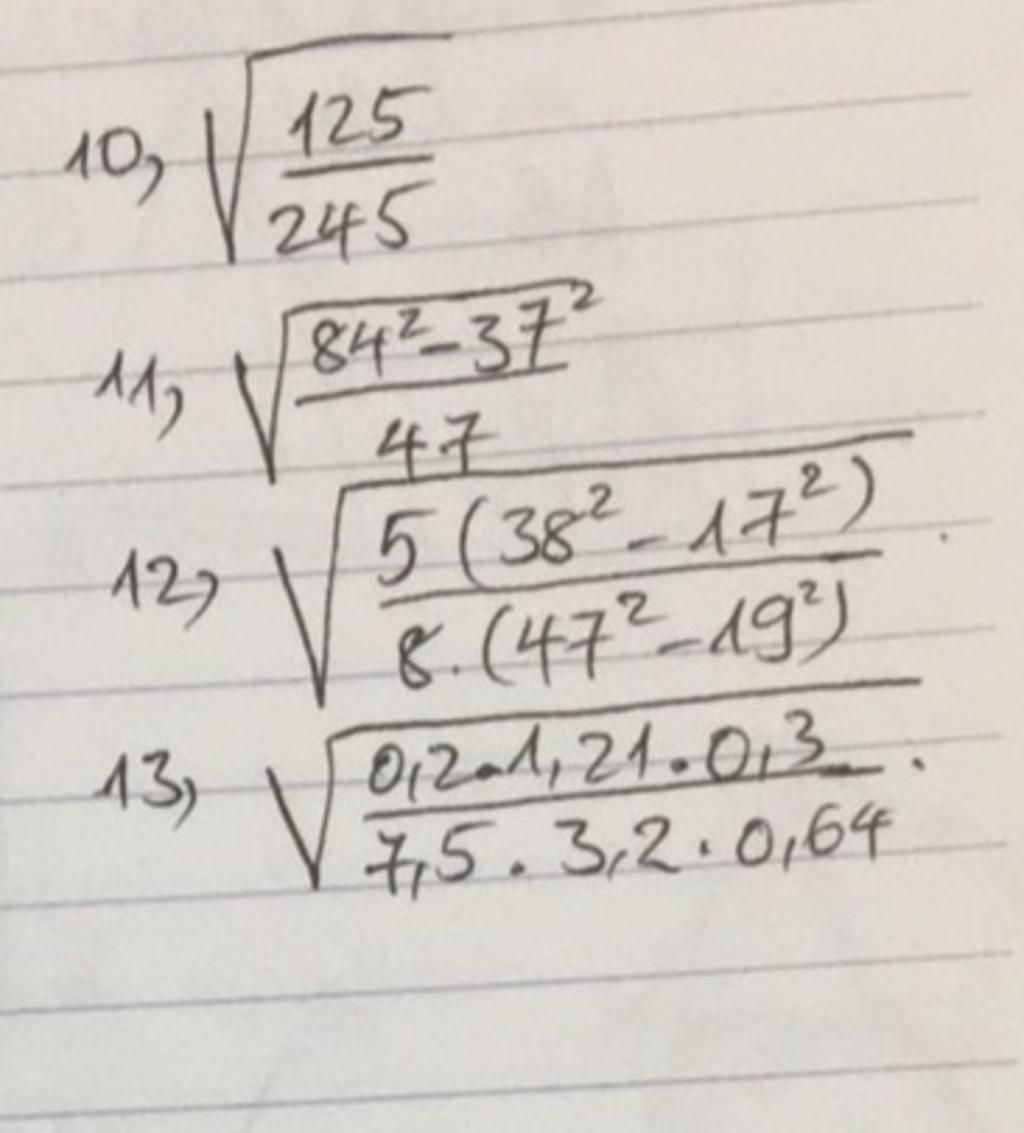 10, √(125/245)
11, √((84² - 37²)/47)
12, √((5 (38² - 17²))/(8. (47² - 19²))) .
13, √((0,2.1,21.0,3)/(7,5 . 3,2 . 0,64)) .